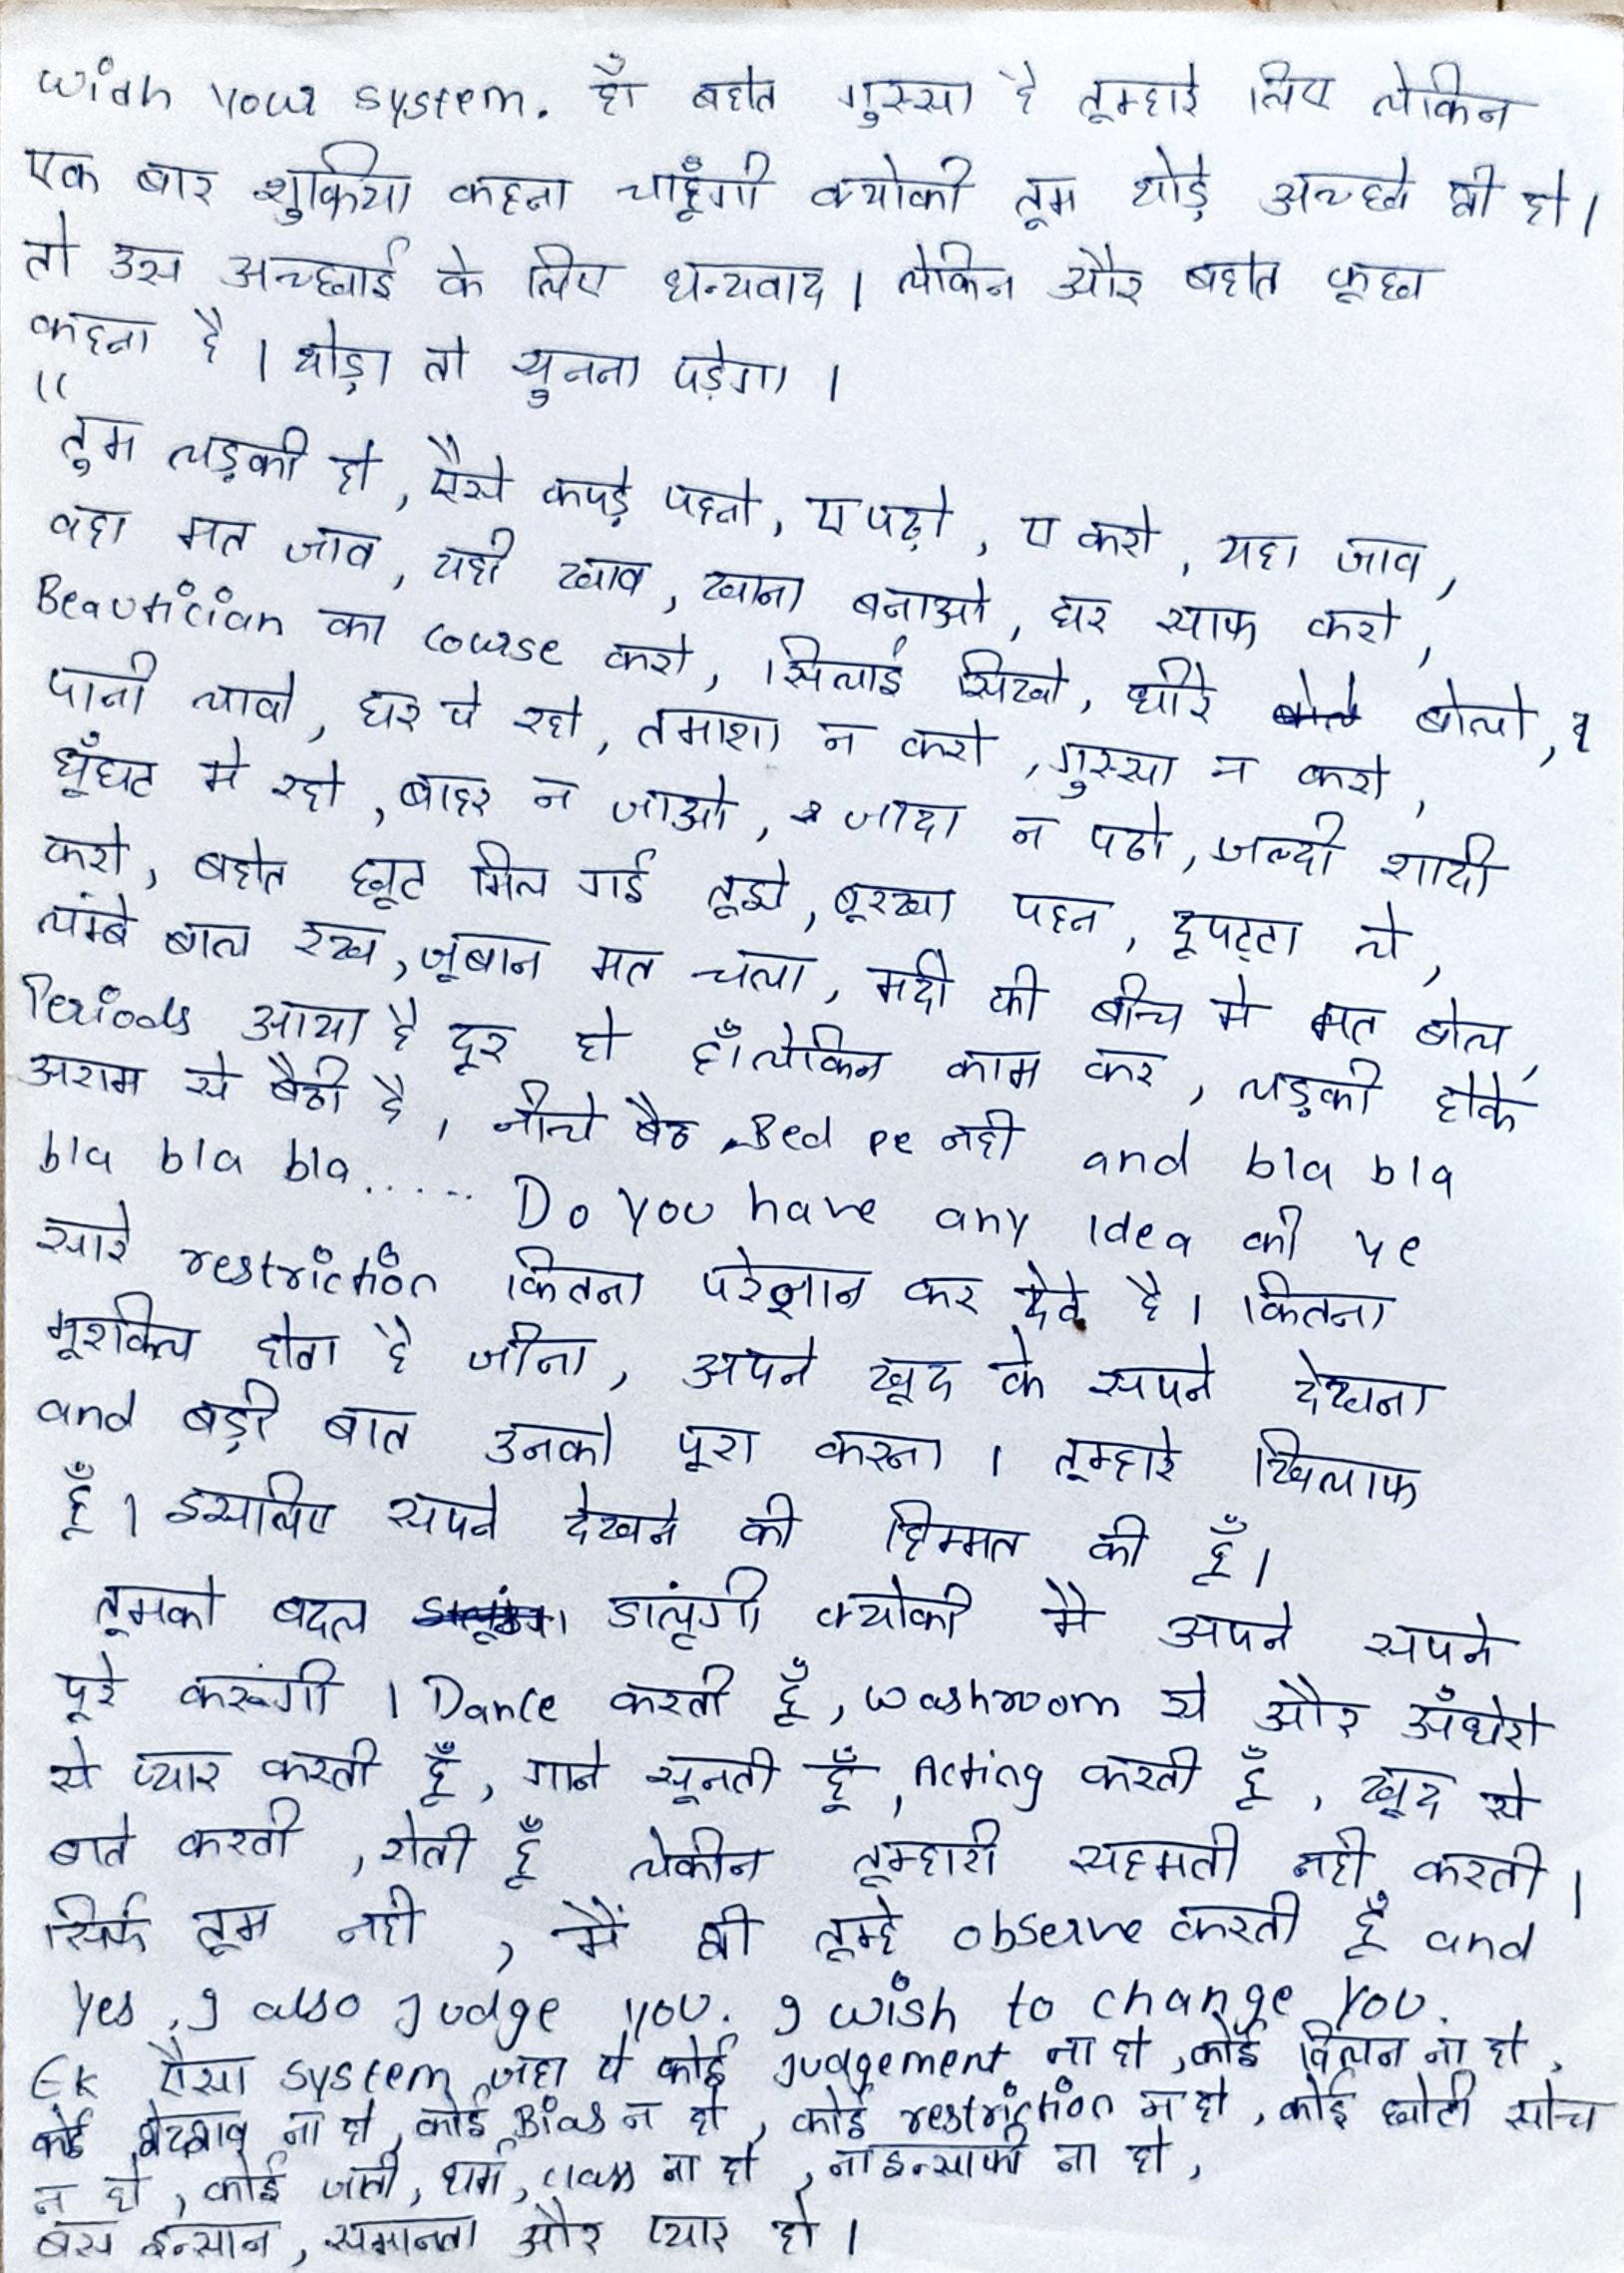 with your system. हाँ बहोत गुस्सा है तूम्हारे लिए लेकिन
एक बार शुक्रिया कहना चाहूँगी क्योकी तूम थोड़े अच्छे भी हो।
तो उस अच्छाई के लिए धन्यवाद। लेकिन और बहोत कूछ
कहना है। थोड़ा तो सुनना पड़ेगा।
"तुम लड़की हो, ऐसे कपड़े पहनो, ए पढ़ो, ए करो, यहा जाव,
वहा मत जाव, यही खाव, खाना बनाओ, घर साफ करो,
Beautician का course करो, सिलाई सिखो, धीरे बोलो,
पानी लावो, घर पे रहो, तमाशा न करो, गुस्सा न करो,
घूँघट मे रहो, बाहर न जाओ, जादा न पढो, जल्दी शादी
करो, बहोत छूट मिल गई तूझे, बूरखा पहन, दूपट्टा ले,
लंम्बे बाल रख, जूबान मत चला, मर्दो की बीच मे मत बोल,
Periods आया है दूर हो हाँ लेकिन काम कर, लड़की होके
अराम से बैठी है, नीचे बैठ, Bed pe नही and bla bla
bla bla bla...... Do you have any idea की ye
सारे restriction कितना परेशान कर देते है। कितना
मूशकिल होता है जीना, अपने खूद के सपने देखना
and बड़ी बात उनको पूरा करना। तूम्हारे खिलाफ
हूँ। इसलिए सपने देखने की हिम्मत की हूँ।
तूमको बदल डालूंगी क्योकी मै अपने सपने
पूरे करूंगी। Dance करती हूँ, washroom से और अँधेरो
से प्यार करती हूँ, गाने सूनती हूँ, Acting करती हूँ, खूद से
बाते करती, रोती हूँ लेकीन तूम्हारी सहमती नही करती।
सिर्फ तूम नही, मैं भी तूम्हे observe करती हूँ and
Yes, I also judge you. I wish to change you.
Ek ऐसा system जहा पे कोई judgement ना हो, कोई विलन ना हो,
कोई भेदभाव ना हो, कोई Bias न हो, कोई restriction न हो, कोई छोटी सोच
न हो, कोई जाती, धर्म, class ना हो, नाइन्साफी ना हो,
बस इन्सान, समानता और प्यार हो।